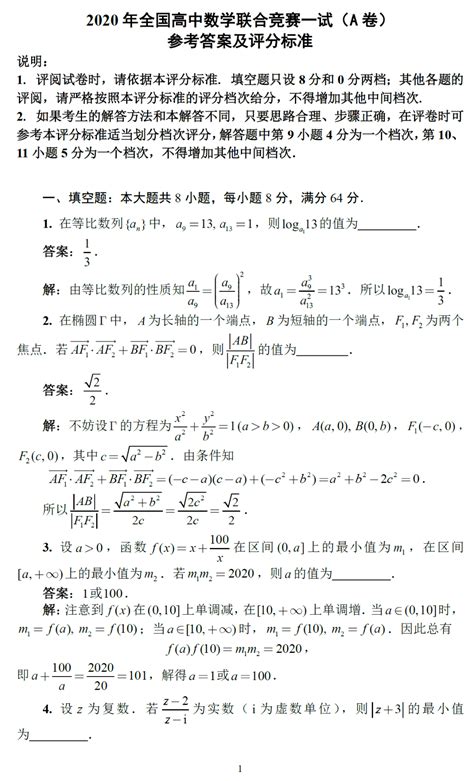 2020 年全国高中数学联合竞赛一试（A 卷）
参考答案及评分标准
说明：
1. 评阅试卷时，请依据本评分标准．填空题只设 8 分和 0 分两档；其他各题的
评阅，请严格按照本评分标准的评分档次给分，不得增加其他中间档次．
2. 如果考生的解答方法和本解答不同，只要思路合理、步骤正确，在评卷时可
参考本评分标准适当划分档次评分，解答题中第 9 小题 4 分为一个档次，第 10、
11 小题 5 分为一个档次，不得增加其他中间档次．
一、填空题：本大题共 8 小题，每小题 8 分，满分 64 分．
1. 在等比数列{aₙ}中，a₉ = 13, a₁₃ = 1，则 log_{a₁} 13 的值为________．
答案：1/3．
解：由等比数列的性质知 a₁/a₉ = (a₉/a₁₃)²，故 a₁ = a₉³/a₁₃² = 13³．所以 log_{a₁} 13 = 1/3．
2. 在椭圆Γ中，A 为长轴的一个端点，B 为短轴的一个端点，F₁, F₂ 为两个
焦点．若 AF₁·AF₂ + BF₁·BF₂ = 0，则 |AB|/|F₁F₂| 的值为________．
答案：√2/2．
解：不妨设Γ的方程为 x²/a² + y²/b² = 1 (a > b > 0)，A(a, 0), B(0, b)，F₁(−c, 0)，
F₂(c, 0)，其中 c = √(a² − b²)．由条件知
AF₁·AF₂ + BF₁·BF₂ = (−c − a)(c − a) + (−c² + b²) = a² + b² − 2c² = 0．
所以 |AB|/|F₁F₂| = √(a² + b²)/2c = √(2c²)/2c = √2/2．
3. 设 a > 0，函数 f(x) = x + 100/x 在区间 (0, a] 上的最小值为 m₁，在区间
[a, +∞) 上的最小值为 m₂．若 m₁m₂ = 2020，则 a 的值为________．
答案：1 或 100．
解：注意到 f(x) 在 (0, 10] 上单调减，在 [10, +∞) 上单调增．当 a ∈ (0, 10] 时，
m₁ = f(a), m₂ = f(10)；当 a ∈ [10, +∞) 时，m₁ = f(10), m₂ = f(a)．因此总有
f(a) f(10) = m₁m₂ = 2020，
即 a + 100/a = 2020/20 = 101，解得 a = 1 或 a = 100．
4. 设 z 为复数．若 (z − 2)/(z − i) 为实数（i 为虚数单位），则 |z + 3| 的最小值
为________．
1